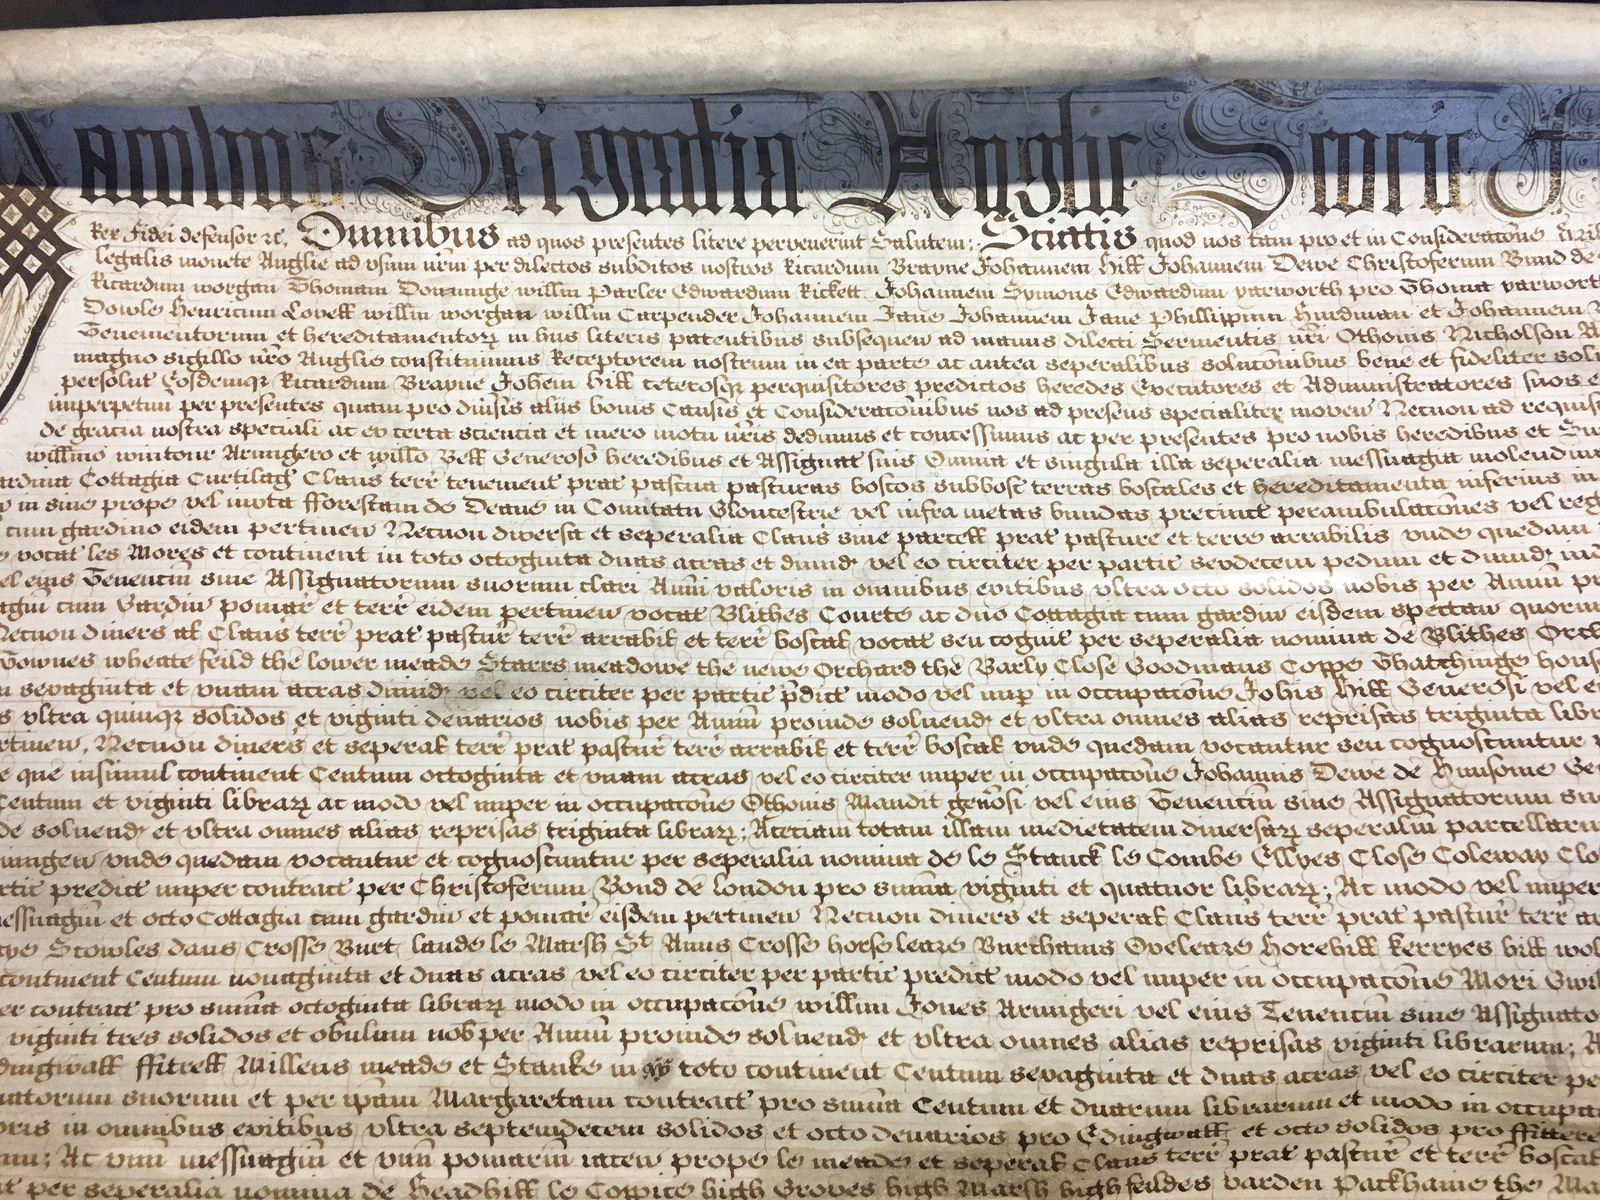 Jacobus Dei gratia Anglie Scocie
Rex Fidei defensor &c. Omnibus ad quos presentes litere pervenerint Salutem; Sciatis quod nos tam pro et in Consideratõne
legalis monete Anglie ad usum nr̃m per dilectos subditos nostros Ricardum Brayne Johannem Hill Johannem Dewe Christoferum Bund de
Ricardum Worgan Thomam Dowinge willm Parler Edwardum Rickett Johannem Symons Edwardum yarworth pro Thoma yarwort
Dowle Henricum Lovell willm worgan willm Carpender Johannem Jane Johannem Jane Phillippum Hurdman et Johannem
Tenementorum et hereditamentorꝝ in hiis literis patentibus subsequen ad manus dilecti Servientis nr̃i Othonis Nicholson
magno sigillo nr̃o Anglie constituimus Receptorem nostrum in ea parte ac antea seperalibus solucõnibus bene et fideliter
persolut Eosdemqꝫ Ricardum Brayne Johem Hill ceterosqꝫ perquisitores predictos heredes Executores et Administratores suos
imperpetuũ per presentes quam pro divˀsis aliis bonis Causis et Consideratõnibus nos ad presens specialiter moven Necnon ad requis
de gracia nostra speciali ac ex certa sciencia et mero motu nr̃is dedimus et concessimus ac per presentes pro nobis heredibus et
willmo wintour Armigero et willo Bell Generoso heredibus et Assignat suis Omnia et singula illa seperalia messuagia molendina
ardina Cottagia Curtilag Claus terr tenement prat pascua pasturas boscos subbosc terras boscales et hereditamenta inferius in
in sive prope vel iuxta fforestam de Deane in Comitatu Gloucestrie vel infra metas bundas precinct perambulatões vel reg
cum gardino eidem pertinen Necnon diversa et seperalia Claus sive parcell prat pasture et terre arrabilis unde quedam
vocat les Mores et continent in toto octoginta duas acras et dimid vel eo circiter per partic sexdecem pedum et dimid
vel eius Tenenciũ sive Assignatorum suorum clari Annũ valoris in omnibus exitibus ultra octo solidos nobis per Annũ
agiũ cum Gardin pomar et terr eidem pertinen vocat Blithes Courte ac duo Cottagia cum gardin eisdem spectan quorum
Necnon divers at Claus terr prat pastur terr arrabil et terr boscal vocat seu cognit per seperalia nomina de Blithes Orch
Townes wheate feild the lower meade Starrs meadowe the newe Orchard the Barly Close Goodmans Coppe Thatchinge hous
sexaginta et unam acras dimid vel eo circiter per partic p̃dict modo vel nup in occupacõne Johis Hill Generosi vel
s ultra quinqꝫ solidos et viginti denarios nobis per Annũ proinde solvend et ultra omnes alias reprisas triginta libr
rtinen, Necnon divers et seperal terr prat pastur terr arrabil et terr boscal unde quedam vocantur seu cognoscuntur
e que insimul continent Centum octoginta et unam acras vel eo circiter nuper in occupacõne Johannis Dewe de Hunsome
Centum et viginti librarꝝ ac modo vel nuper in occupacõne Othonis Mandit gen̄osi vel eius Tenenciũ sive Assignatorum
de solvend et ultra omnes alias reprisas triginta librarꝝ; Aceciam totam illam medietatem diversarꝝ seperaliũ parcellarum
unde quedam vocantur et cognoscuntur per seperalia nomina de le Stanck le Combe Ellyes Close Coleway Clo
rtic predict nuper contract per Christoferum Bond de London pro sum̃a viginti et quatuor librarꝝ; Ac modo vel nuper
essuagiũ et octo Cottagia cum gardin et pomar eisdem pertinen Necnon divers et seperal Claus terr prat pastur terr
Stowles daus Crosse Burt laude le Marsh St Anns Crosse horse leaze Burchams Oxeleaze Horehill kerryes hill
continent Centum nonaginta et duas acras vel eo circiter per partic predict modo vel nuper in occupacõne Mori
er contract pro sum̃a octoginta librarꝝ modo in occupacõne willmi Jones Armigeri vel eius Tenenciũ sive Assignato
viginti tres solidos et obulum nob per Annũ proinde solvend et ultra omnes alias reprisas viginti librarum;
dingwall ffitrell Millens meade et Stanke in toto continent Centum sexaginta et duas acras vel eo circiter
natorum suorum et per ipam Margaretam contract pro sum̃a Centum et duarum librarum et modo in occupa
oris in omnibus exitibus ultra septemdecem solidos et octo denarios pro Edingwall et octo solidos pro ffittere
Ac unũ messuagiũ et unũ pomariũ iacen prope le meade et seperal Claus terr prat pastur et terr boscal
per seperalia nomina de Headhill le Coppice high Groves high Marsh high feildes varden Packhame the